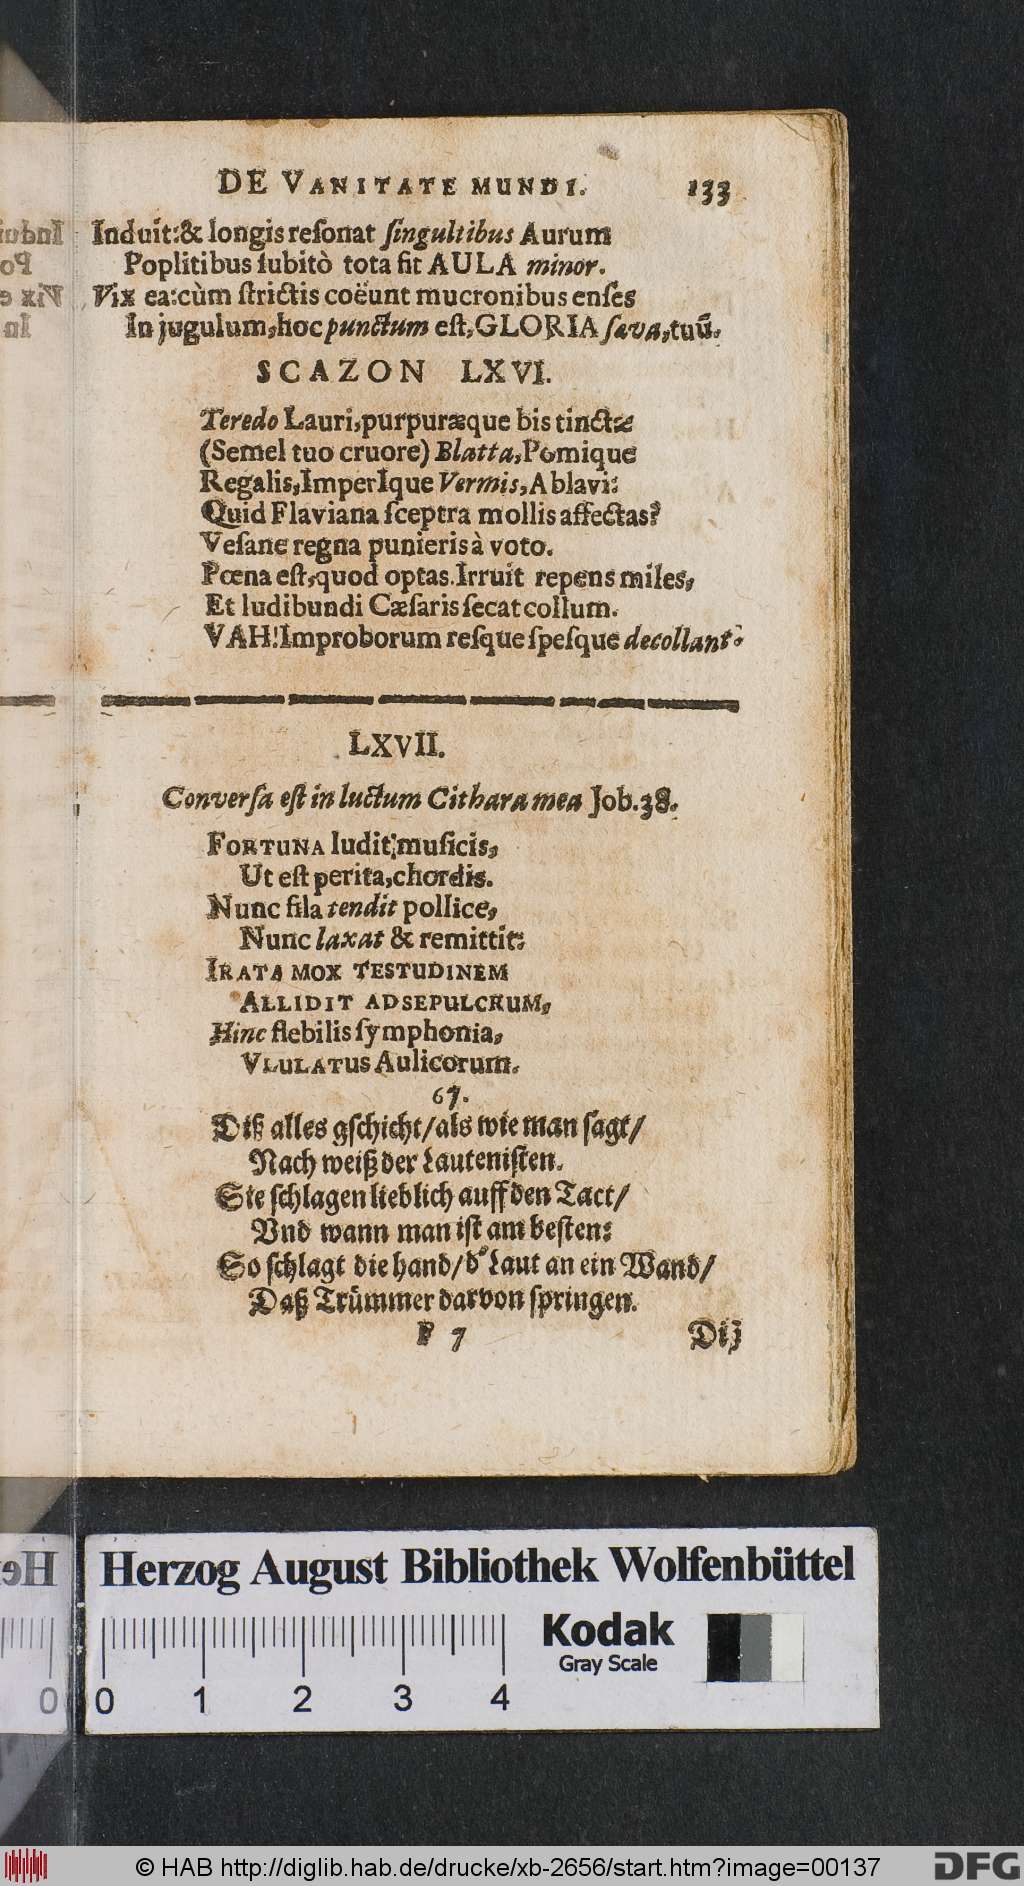 DE VANITATE MUNDI. 133
Induit:& longis reſonat ſingultibus Aurum
Poplitibus ſubitò tota fit AULA minor.
Vix ea:cùm ſtrictis coëunt mucronibus enſes
In jugulum,hoc punctum eſt,GLORIA ſæva,tuũ.
SCAZON LXVI.
Teredo Lauri,purpuræque bis tinctæ
(Semel tuo cruore) Blatta,Pomique
Regalis,ImperIque Vermis,Ablavi:
Quid Flaviana ſceptra mollis affectas?
Veſane regna punieris à voto.
Pœna eſt,quod optas.Irruit repens miles,
Et ludibundi Cæſaris ſecat collum.
VAH!Improborum reſque ſpeſque decollant
LXVII.
Converſa eſt in luctum Cithara mea Job.38.
FORTUNA ludit muſicis,
Ut eſt perita,chordis.
Nunc fila tendit pollice,
Nunc laxat & remittit:
IRATA MOX TESTUDINEM
ALLIDIT AD SEPULCRUM,
Hinc flebilis ſymphonia,
VLULATUS Aulicorum.
67.
Diß alles gſchicht/als wie man ſagt/
Nach weiß der Lauteniſten.
Sie ſchlagen lieblich auff den Tact/
Vnd wann man iſt am beſten:
So ſchlagt die hand/d' Laut an ein Wand/
Daß Trümmer darvon ſpringen.
F 7 Diß
Herzog August Bibliothek Wolfenbüttel
Kodak
Gray Scale
0 0 1 2 3 4
© HAB http://diglib.hab.de/drucke/xb-2656/start.htm?image=00137
DFG